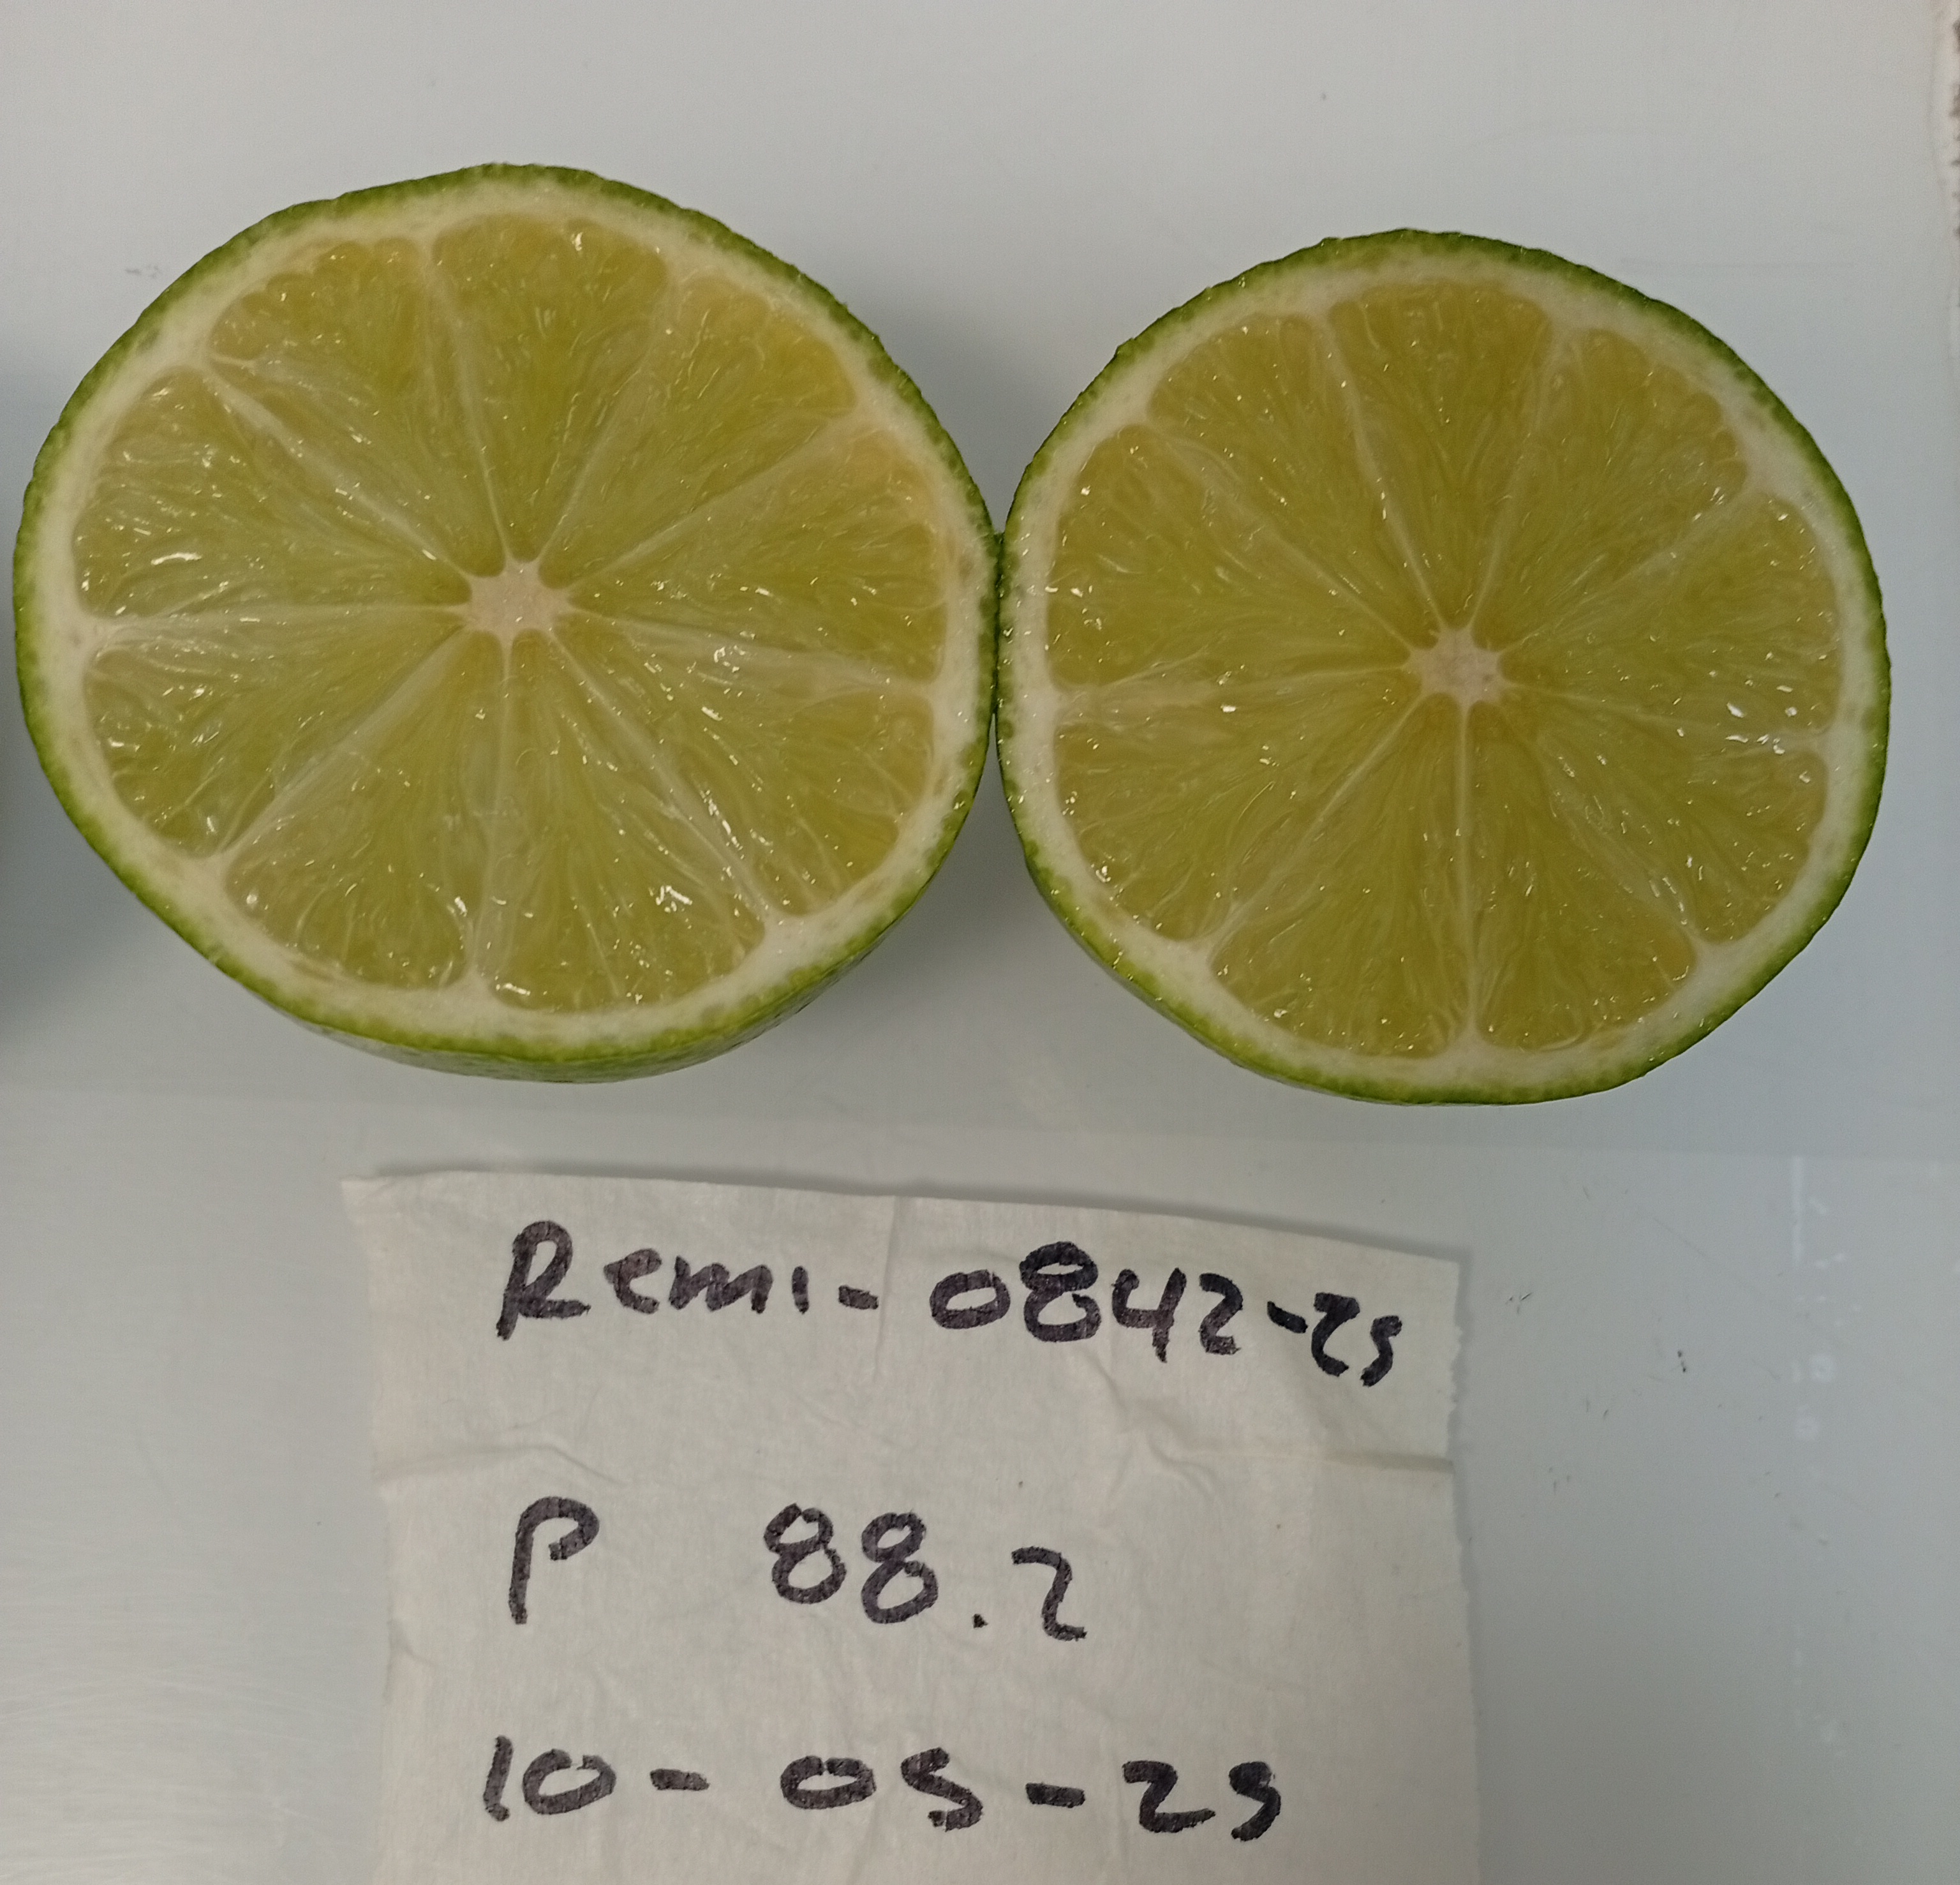 Remi-0842-25
P 88.2
10-05-25